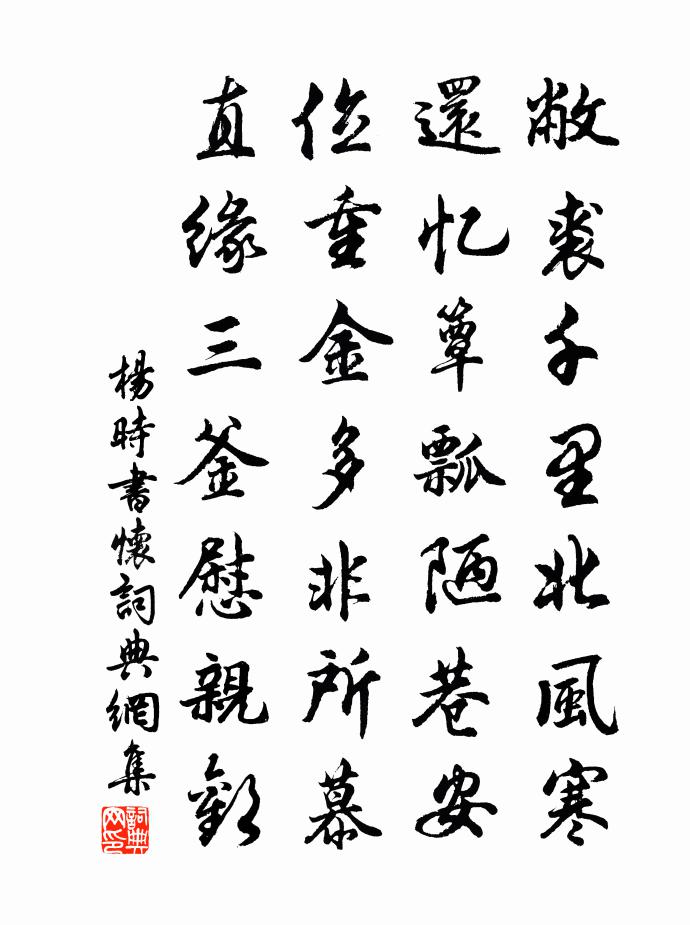 敝裘千里北風寒
還忆簞瓢陋巷安
位重金多非所慕
直缘三釜慰親歡
楊時書懷詞典網集
詞典网印